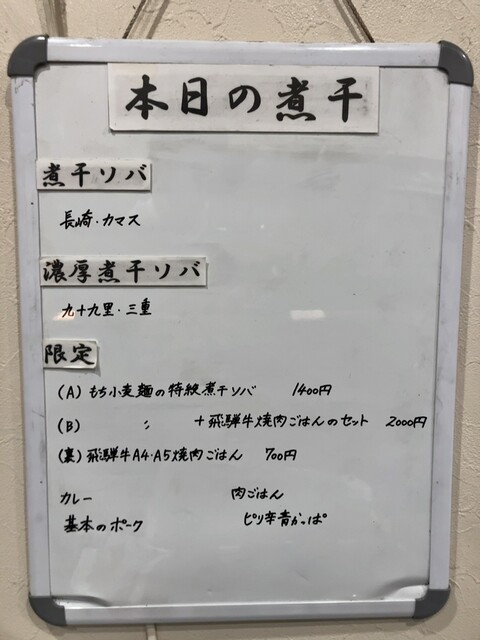 本日の煮干
煮干ソバ
長崎・カマス
濃厚煮干ソバ
九十九里・三重
限定
(A) もち小麦麺の特級煮干ソバ 1400円
(B) 〃 +飛騨牛焼肉ごはんのセット 2000円
(裏) 飛騨牛A4・A5焼肉ごはん 700円
カレー 肉ごはん
基本のポーク ピリ辛青かっぱ